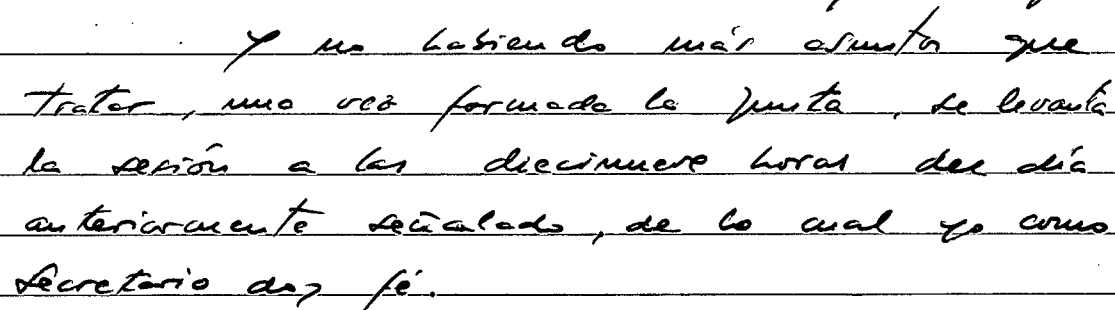 Y no habiendo más asuntos que
tratar, una vez formada la Junta, se levanta
la sesión a las diecinueve horas del día
anteriormente señalado, de lo cual yo como
Secretario doy fé.